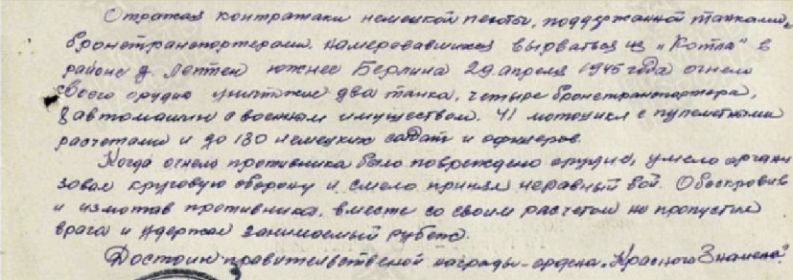 Отражая контратаки немецкой пехоты, поддержанной танками,
бронетранспортерами, намеревавшихся вырваться из „Котла" в
районе д. Леттен южнее Берлина 29 апреля 1945 года огнем
своего орудия уничтожил два танка, четыре бронетранспортера,
8 автомашин с военным имуществом, 41 мотоцикл с пулеметными
расчетами и до 130 немецких солдат и офицеров.
Когда огнем противника было повреждено орудие, умело органи
зовал круговую оборону и смело принял неравный бой. Обескровив
и измотав противника, вместе со своим расчетом не пропустил
врага и удержал занимаемый рубеж.
Достоин правительственной награды - ордена „Красного Знамени".